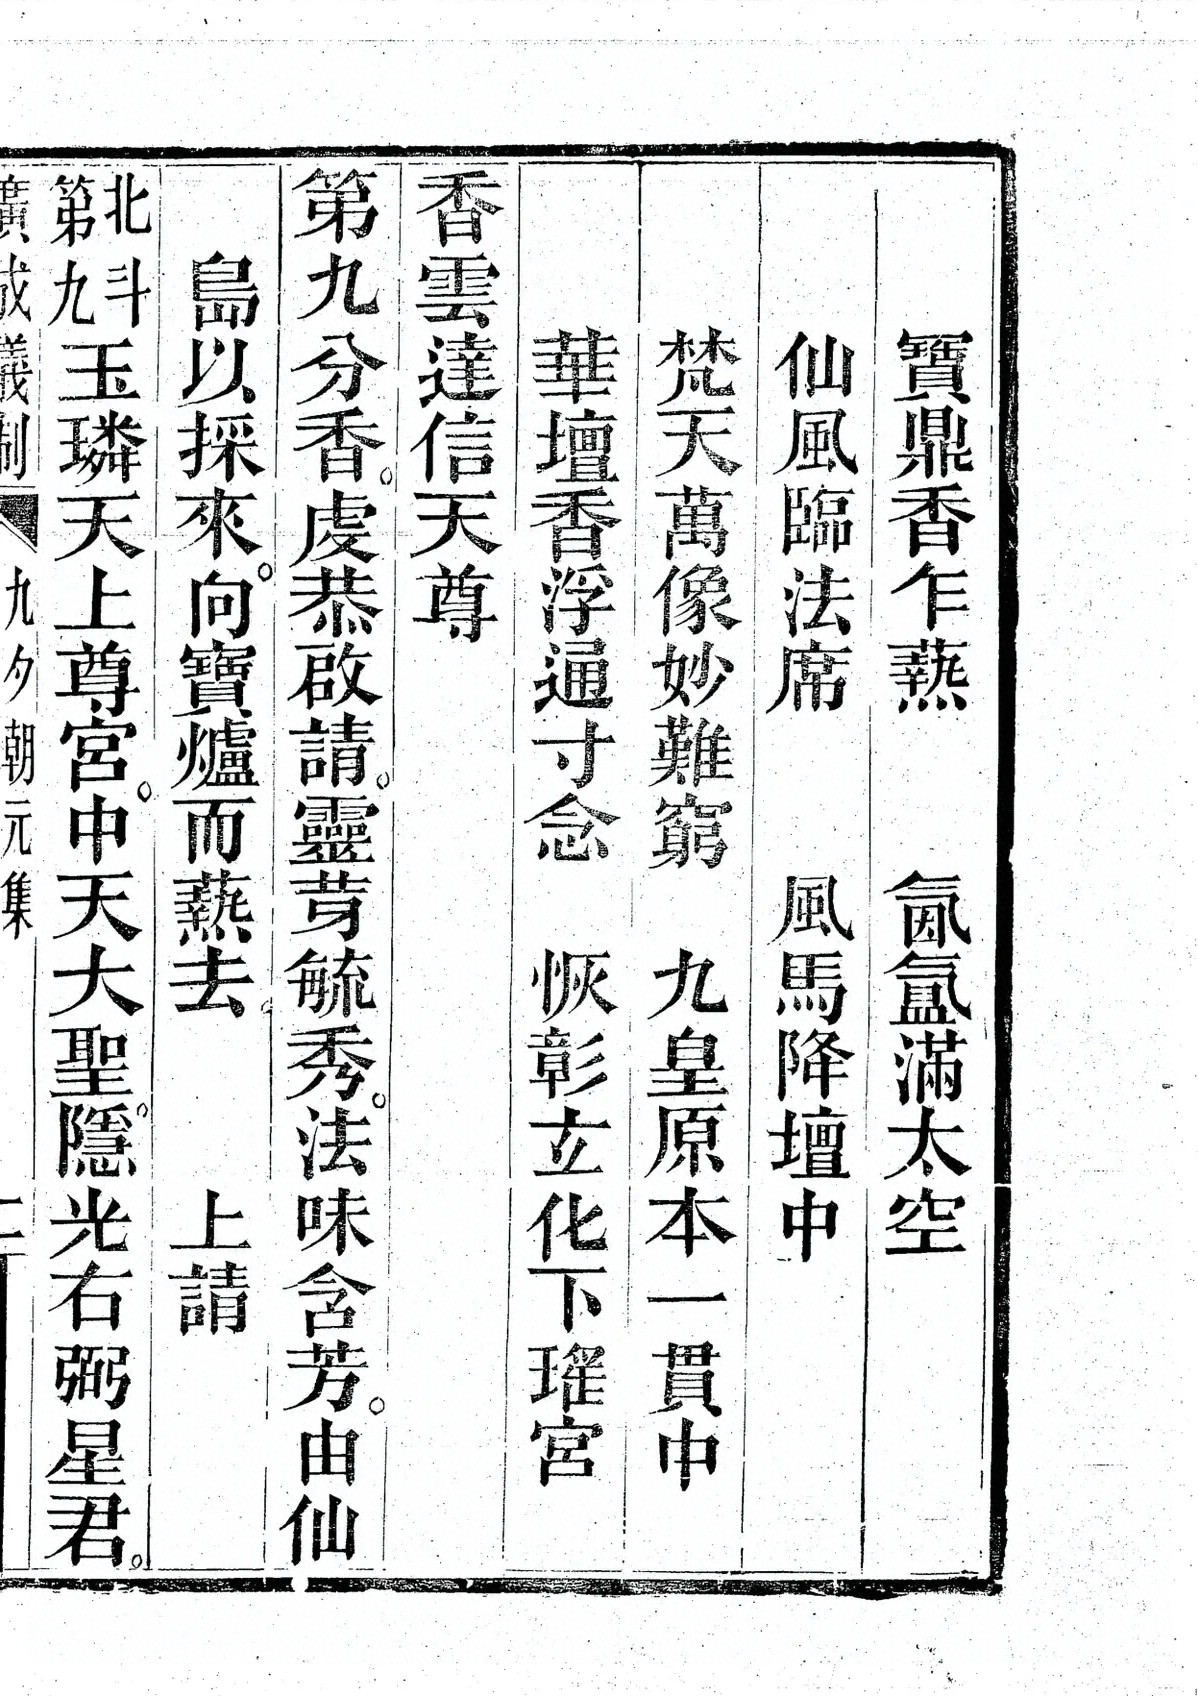 寶鼎香乍爇　氤氳滿太空
仙風臨法席　風馬降壇中
梵天萬像妙難窮　九皇原本一貫中
華壇香浮通寸念　恢彰立化下瑤宮
香雲達信天尊
第九分香。虔恭啟請。靈芽毓秀。法味含芳。由仙
島以採來。向寶爐而爇去。　上請
北斗第九玉璘天上尊宮。中天大聖。隱光右弼星君。
廣成儀制　九夕朝元集